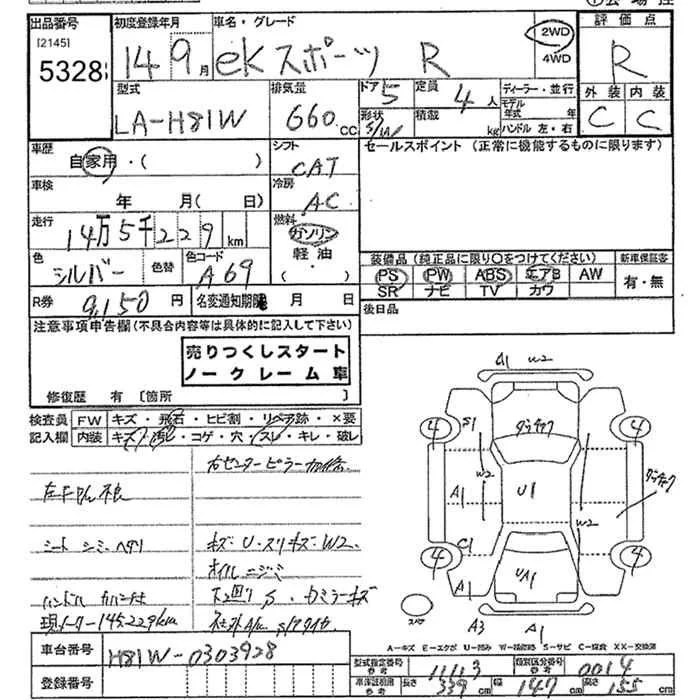 出品番号
初度登録年月
車名・グレード
評価点
[2145]
5328
14年9月
eKスポーツ R
2WD
4WD
R
型式
LA-H81W
排気量
660 CC
ドア 5
形状 S/W
定員 4 人
積載 kg
ディーラー・並行
モデル年式 年
ハンドル 左・右
外装 内装
C C
車歴
自家用・( )
シフト
CAT
セールスポイント(正常に機能するものに限ります)
車検
年 月( 日)
冷房
AC
走行
14万5千229 km
燃料
ガソリン
軽油
( ・ )
色
シルバー
色替
色コード
A69
装備品(純正品に限り○をつけてください)
新車保証書
PS PW ABS エアB AW
SR ナビ TV カワ
有・無
R券 9,150 円
名変通知期限 月 日
後日品
注意事項申告欄(不具合内容等は具体的に記入して下さい)
売りつくしスタート
ノークレーム車
修復歴 有[箇所 ]
検査員記入欄
FW キズ・飛石・ヒビ割・リペア跡・×要
内装 キズ・汚れ・コゲ・穴・スレ・キレ・破レ
右センターピラー
シート シミ ヘタリ
キズ・U・スリキズ・W2
オイルニジミ
下回りS
現メーター145229km
車台番号
H81W-0303928
登録番号
A1 W2
S1
ダッチャク
4 4
W2
A1
U1
ダッチャク
W2
C1
4 4
A1
UA1
スペア
A3 A1
A=キズ E=エクボ U=凹み W=補修跡 S=サビ C=腐食 XX=交換済
型式指定番号 参考 11113
類別区分番号 参考 0014
車体諸範囲 参考 長さ 339 cm 幅 147 cm 高さ 155 cm